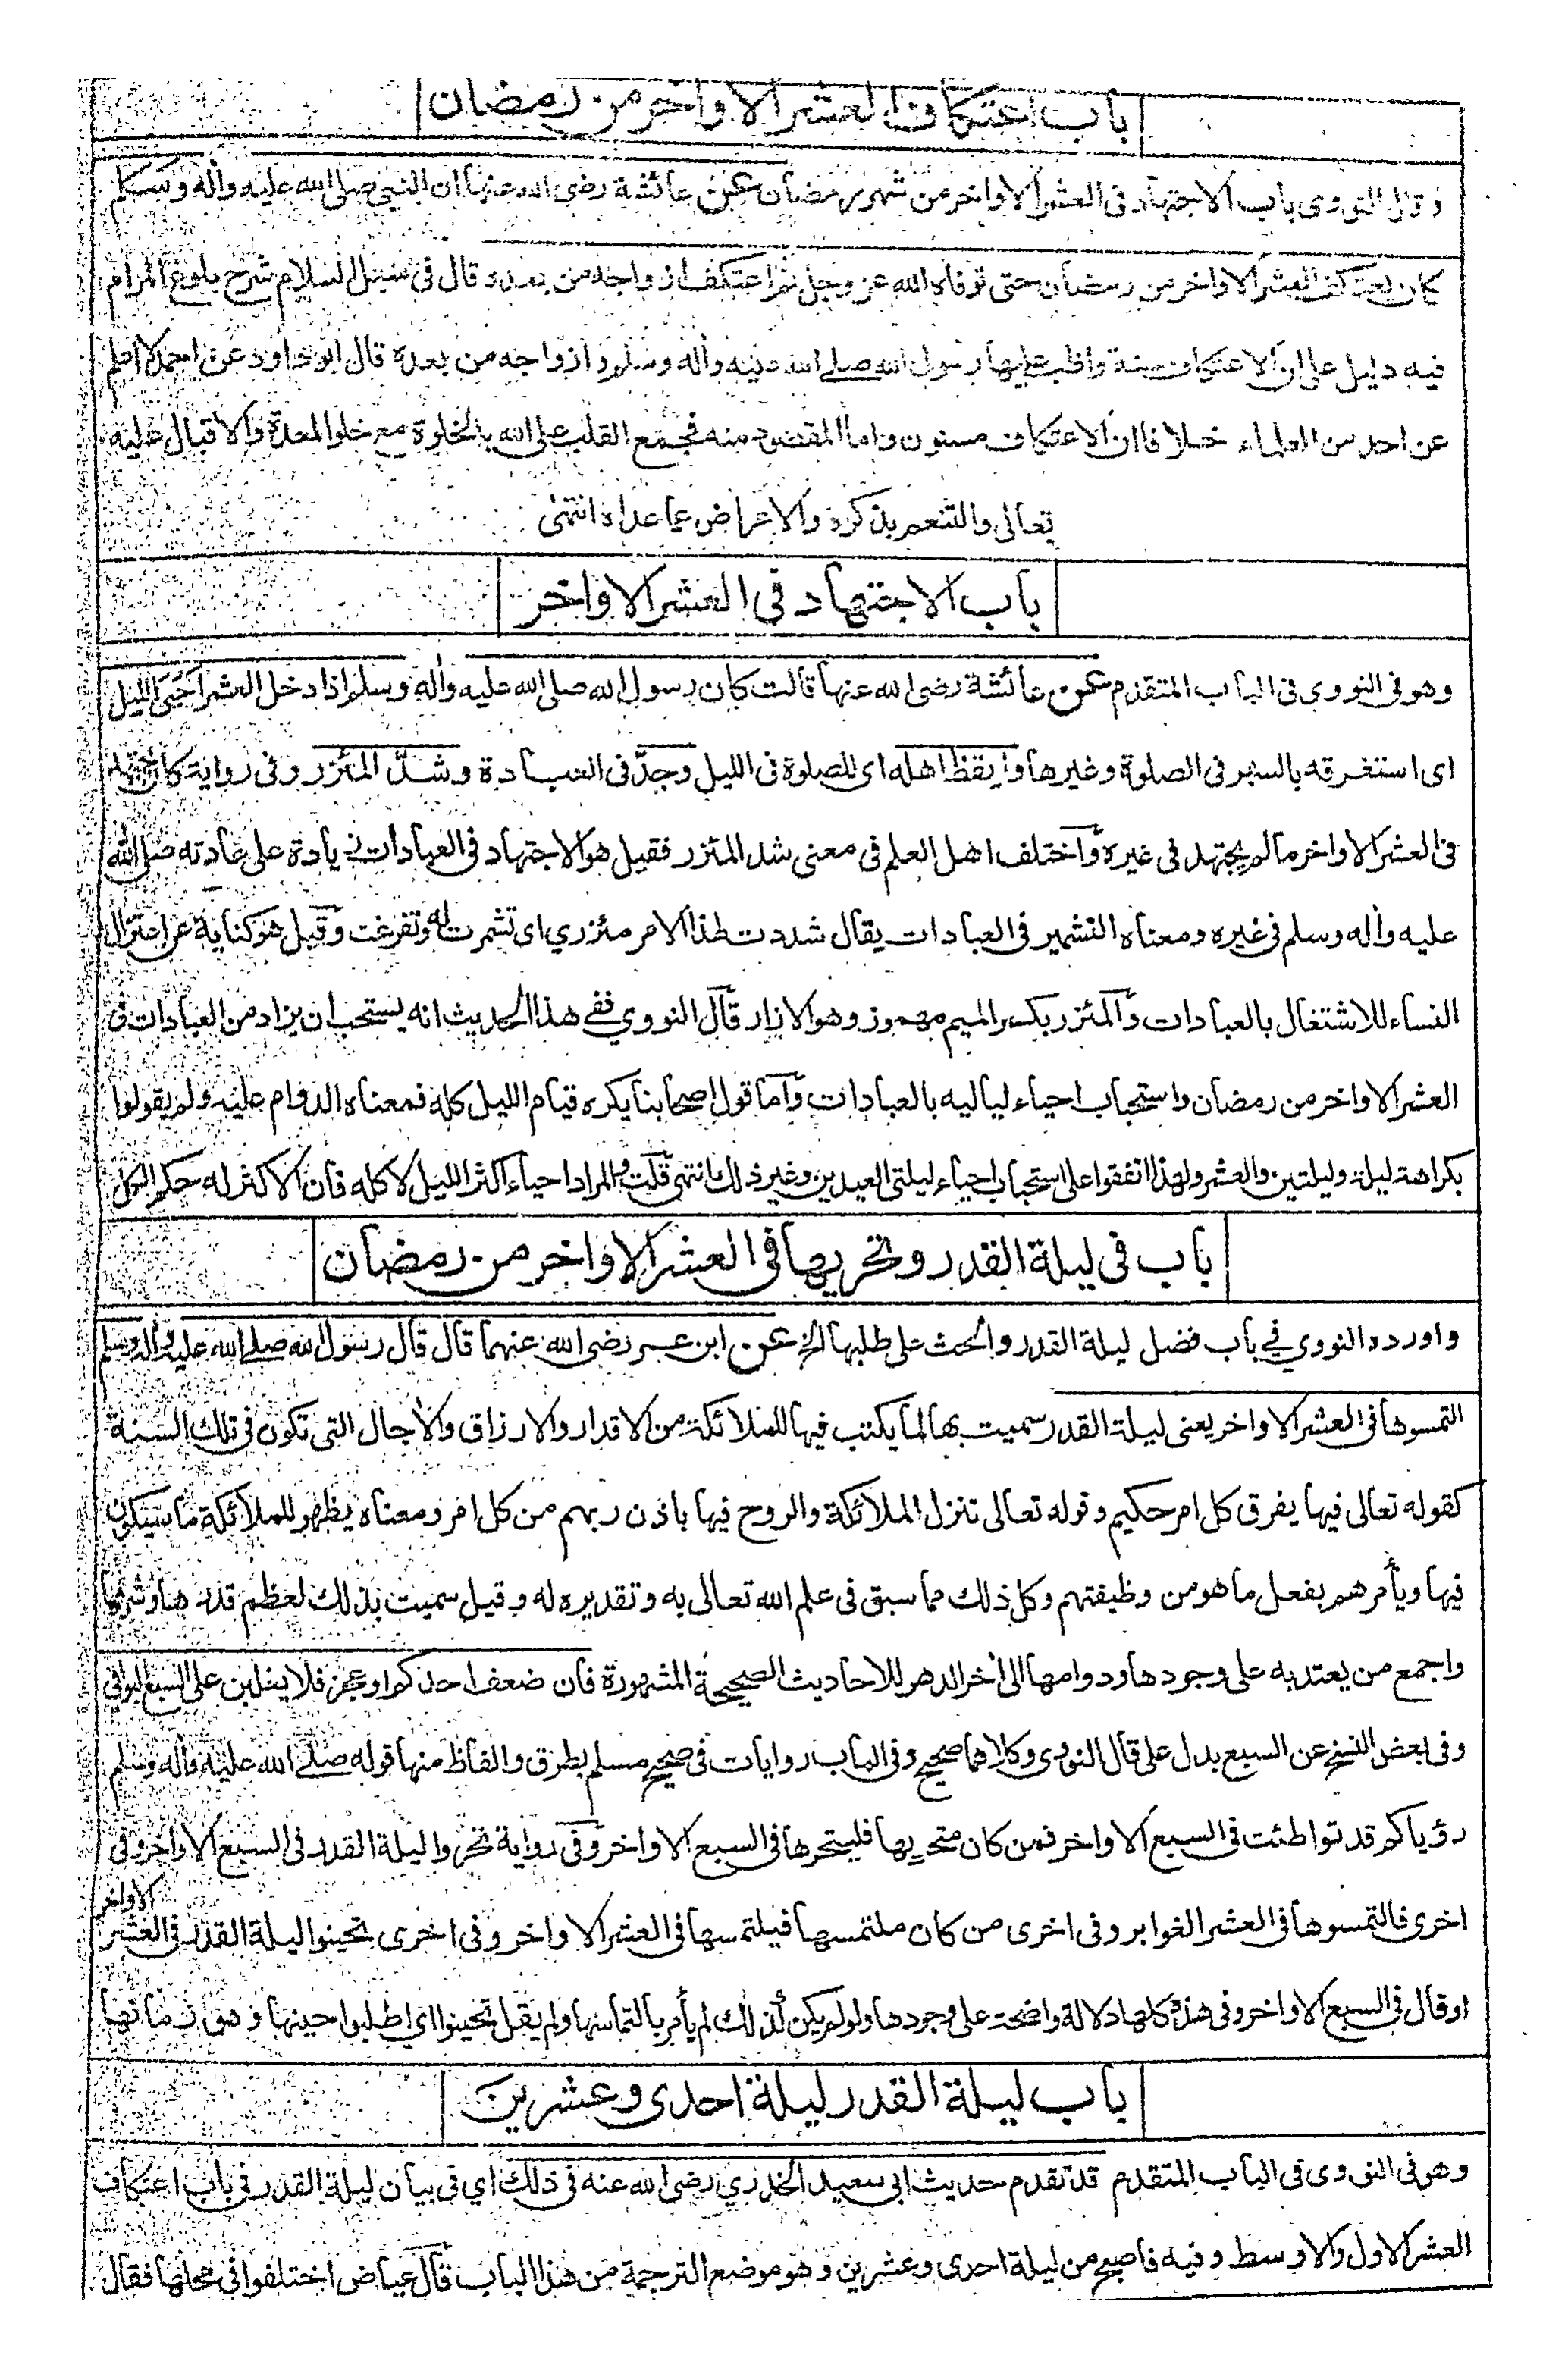 باب اعتكاف العشر الاواخر من رمضان
وقال النووى باب الاجتهاد فى العشر الاواخر من شهر رمضان عن عائشة رضى الله عنها ان النبى صلى الله عليه واله وسلم
كان يعتكف العشر الاواخر من رمضان حتى توفاه الله عز وجل ثم اعتكف ازواجه من بعده قال فى سبل السلام شرح بلوغ المرام
فيه دليل على ان الاعتكاف سنة واظب عليها رسول الله صلے الله عليه واله وسلم وازواجه من بعده قال ابو داود عن احمد لا اعلم
عن احد من العلماء خلافا ان الاعتكاف مسنون واما المقصود منه فجمع القلب على الله بالخلوة مع خلو المعدة والاقبال عليه
تعالى والتنعم بذكره والاعراض عما عداه انتهى
باب الاجتهاد فى العشر الاواخر
وهو فى النووى فى الباب المتقدم عن عائشة رضى الله عنها قالت كان رسول الله صلى الله عليه واله وسلم اذا دخل العشر احيى الليل
اى استغرقه بالسهر فى الصلوة وغيرها وايقظ اهله اى للصلوة فى الليل وجدّ فى العبادة وشدّ المئزر وفى رواية كان يجتهد
فى العشر الاواخر ما لم يجتهد فى غيره واختلف اهل العلم فى معنى شد المئزر فقيل هو الاجتهاد فى العبادات زيادة على عادته صلى الله
عليه واله وسلم فى غيره ومعناه التشمير فى العبادات يقال شددت لهذا الامر مئزري اى تشمرت له وتفرغت وقيل هو كناية عن اعتزال
النساء للاشتغال بالعبادات والمئزر بكسر الميم مهموز وهو الازار قال النووي ففے هذا الحديث انه يستحب ان يزاد من العبادات فى
العشر الاواخر من رمضان واستحباب احياء لياليه بالعبادات واما قول اصحابنا يكره قيام الليل كله فمعناه الدوام عليه ولم يقولوا
بكراهة ليلة وليلتين والعشر ولهذا اتفقوا على استحباب احياء ليلتى العيدين وغير ذلك انتهى قلت والمراد احياء اكثر الليل لا كله فان الاكثر له حكم الكل
باب فى ليلة القدر وتحريها فى العشر الاواخر من رمضان
واورده النووي فے باب فضل ليلة القدر والحث على طلبها الخ عن ابن عمر رضى الله عنهما قال قال رسول الله صلے الله عليه واله وسلم
التمسوها فى العشر الاواخر يعنى ليلة القدر سميت بها لما يكتب فيها للملائكة من الاقدار والارزاق والاجال التى تكون فى تلك السنة
كقوله تعالى فيها يفرق كل امر حكيم وقوله تعالى تنزل الملائكة والروح فيها باذن ربهم من كل امر ومعناه يظهر للملائكة ما سيكون
فيها ويأمرهم بفعل ما هو من وظيفتهم وكل ذلك مما سبق فى علم الله تعالى به وتقديره له وقيل سميت بذلك لعظم قدرها وشرفها
واجمع من يعتد به على وجودها ودوامها الى اخر الدهر للاحاديث الصحيحة المشهورة فان ضعف احدكم او عجز فلا يغلبن على السبع البواقى
وفى بعض النسخ عن السبع بدل على قال النووى وكلاهما صحيح وفى الباب روايات فى صحيح مسلم بطرق والفاظ منها قوله صلے الله عليه واله وسلم
رؤياكم قد تواطئت فى السبع الاواخر فمن كان متحريها فليتحرها فى السبع الاواخر وفى رواية تحروا ليلة القدر فى السبع الاواخر وفى
اخرى فالتمسوها فى العشر الغوابر وفى اخرى من كان ملتمسها فيلتمسها فى العشر الاواخر وفى اخرى تحينوا ليلة القدر فى العشر الاواخر
او قال فى السبع الاواخر وفى هذه كلها دلالة واضحة على وجودها ولو لم يكن كذلك لم يأمر بالتماسها ولم يقل تحينوا اي اطلبوا حينها وهو زمانها
باب ليلة القدر ليلة احدى وعشرين
وهو فى النووى فى الباب المتقدم قد تقدم حديث ابى سعيد الخدري رضى الله عنه فى ذلك اي فى بيان ليلة القدر فى باب اعتكاف
العشر الاول والاوسط وفيه فاصبح من ليلة احدى وعشرين وهو موضع الترجمة من هذا الباب قال عياض اختلفوا فى محلها فقال